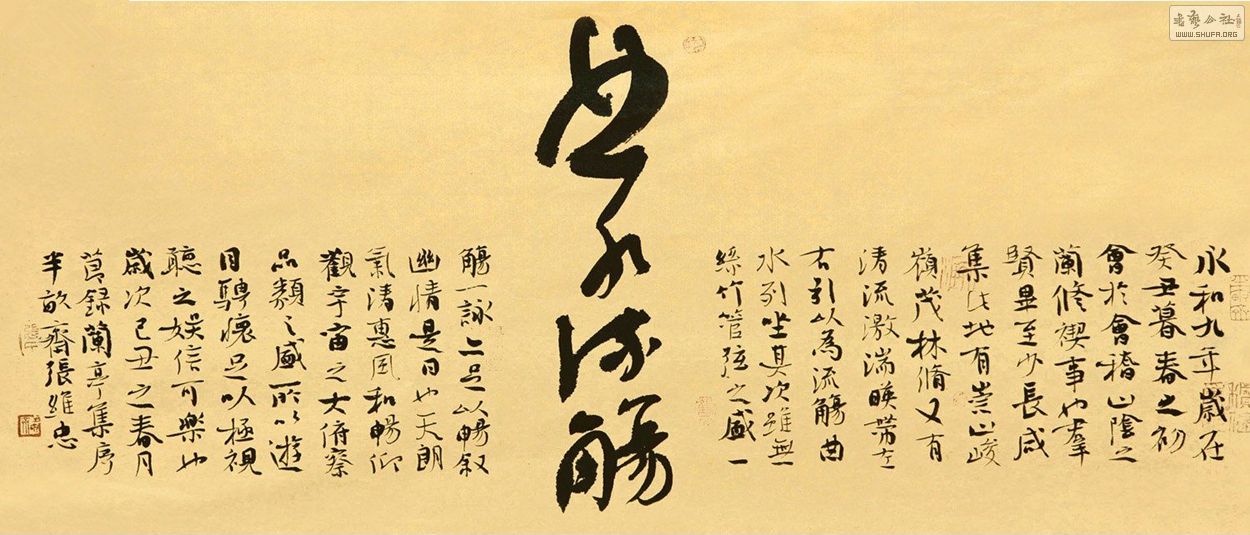 書藝公社
WWW.SHUFA.ORG
永和九年歲在
癸丑暮春之初
會於會稽山陰之
蘭脩禊事也羣
賢畢至少長咸
集此地有崇山峻
嶺茂林脩又有
清流激湍暎帶左
右引以為流觴曲
水列坐其次雖無
絲竹管弦之盛一
曲水流觴
觴一詠亦足以暢叙
幽情是日也天朗
氣清惠風和暢仰
觀宇宙之大俯察
品類之盛所以遊
目騁懷足以極視
聽之娛信可樂也
歲次己丑之春月
節錄蘭亭集序
半畝齋張維忠